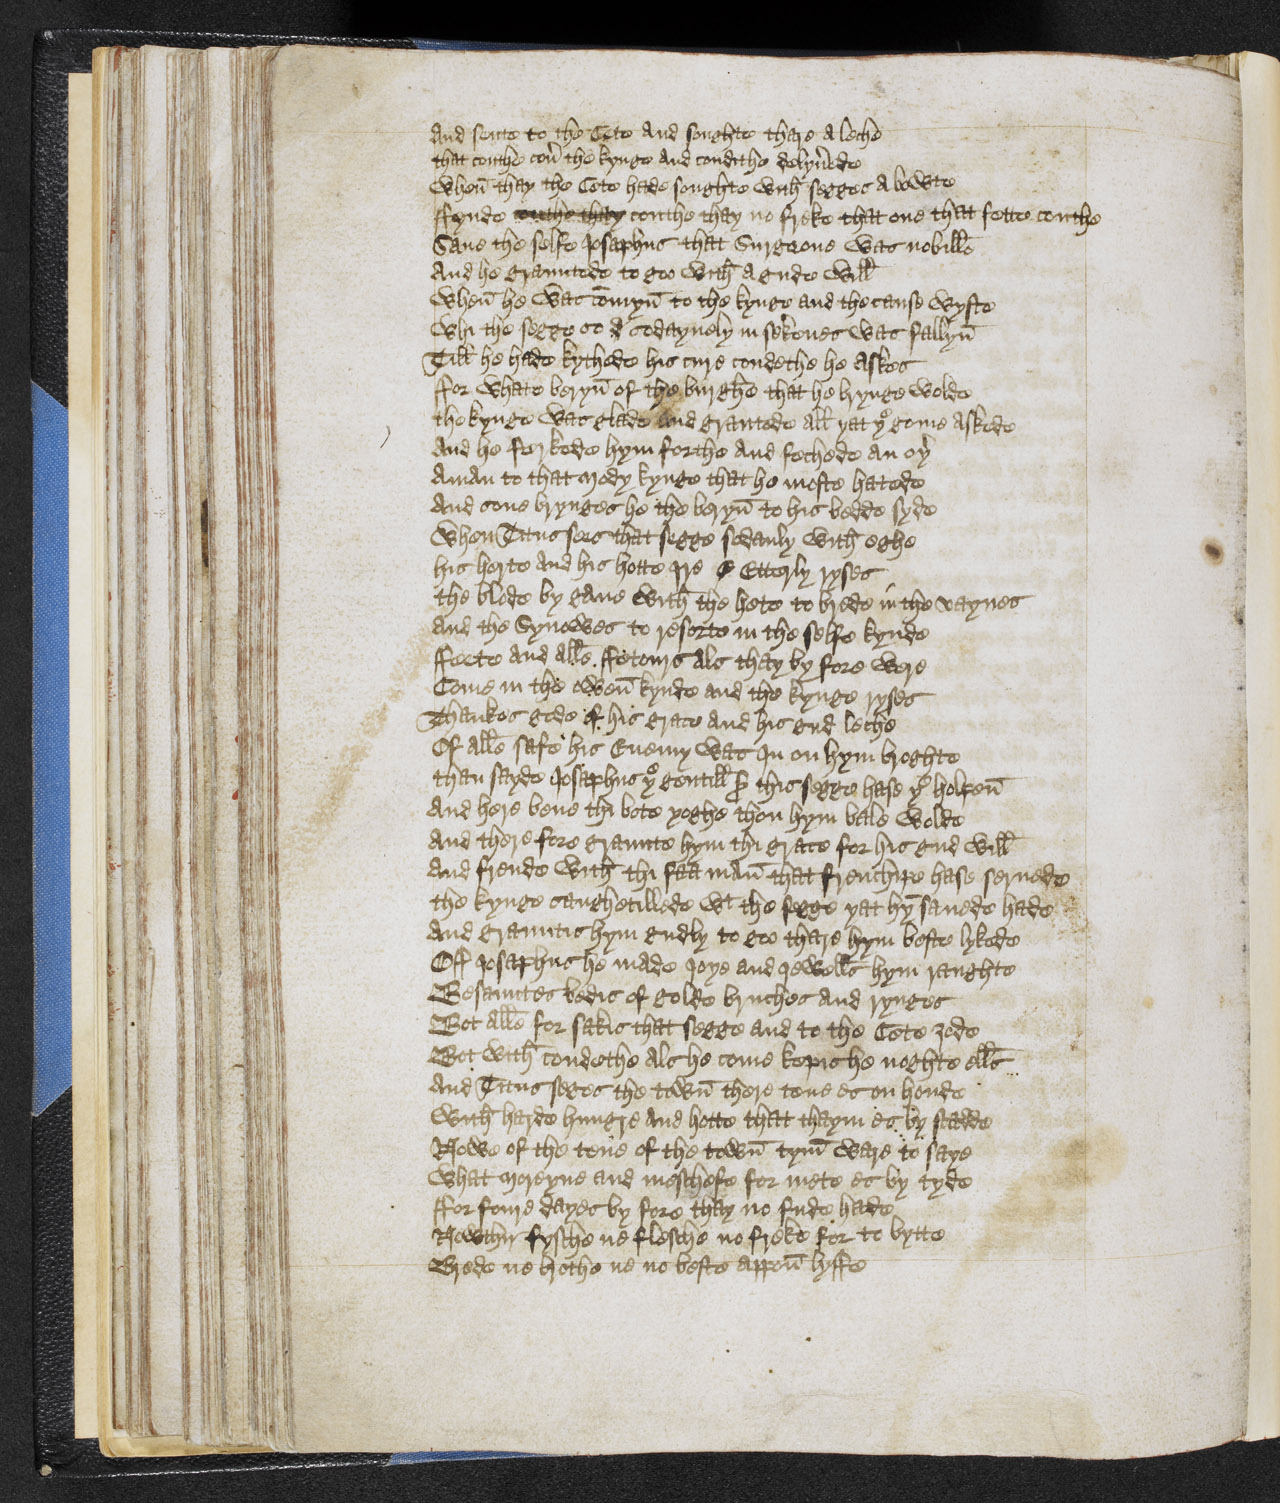 And sente to the Cete And soughte thare A leche
that couthe cou̾ the kynge And condithe delyu̾ede
When̄ thay the Cete hade soughte with segges A bowte
ffynde couthe thay couthe thay no freke that one that fette couthe
Saue the selfe Iosaphus that Surgeone was nobill̄
And he grauntede to goo with A gude will̄
When̄ he was co̅myn̄ to the kynge and the cause wyste
Whi the segge so d sodaynely in sekenes was fallyn̄
Till he hade kythede his cure condethe he Askes
ffor whate beryn̄ of the burghe that he brynge wolde
the kynge was glade And grantede all yat yͤ gome Askede
And he ferkede hym forthe And fechede an oy̾
A man to that mody kynge that he moste hatede
And sone brynges he the beryn̄ to his bedde syde
When Titus sees that segge sodanly with eghe
his herte And his hotte Ire Etterly ryses
the blode by gane with the hete to brede in the vaynes
And the Synowes to resorte in the selfe kynde
ffeete And all̄e ffetours Als thay by fore were
Come in the owen̄ kynde And the kynge ryses
Thankes gode of his grace And his gud leche
Of all̄e safe his Enemy was In on hym broghte
than sayde Iosaphus yͤ gentill̄ S͛ this segge hase yͤ holpen̄
And here bene thi bote yoghe thou hym bale wolde
And there fore graunte hym thi grace for his gud will̄
And frende with thi faa man̄ that frenchipe hase seruede
the kynge saughetillede wͭ the segge yat hy̅ sauede hade
And grauntis hym gudly to goo thare hym beste lykede
Off Iosaphus he made Joye and Jewell̄s hym raughte
Besauntes bedis of golde bruches And rynges
Bot all̄e for sakis that segge And to the Cete ȝode
Bot with condethe Als he come kepis he noghte ell̄s
And Titus seges the town̄ there tene es on hende
With harde hungre And hotte that thaym es by stadde
Nowe of the tene of the town̄ tym̄ ware to saye
What moreyne and meschefe for mete es by tyde
ffor foure dayes by fore thay no fude hade
Nowthir fysche ne flesche no freke for to bytte
Brede ne brothe ne no beste appon̄ lyffe